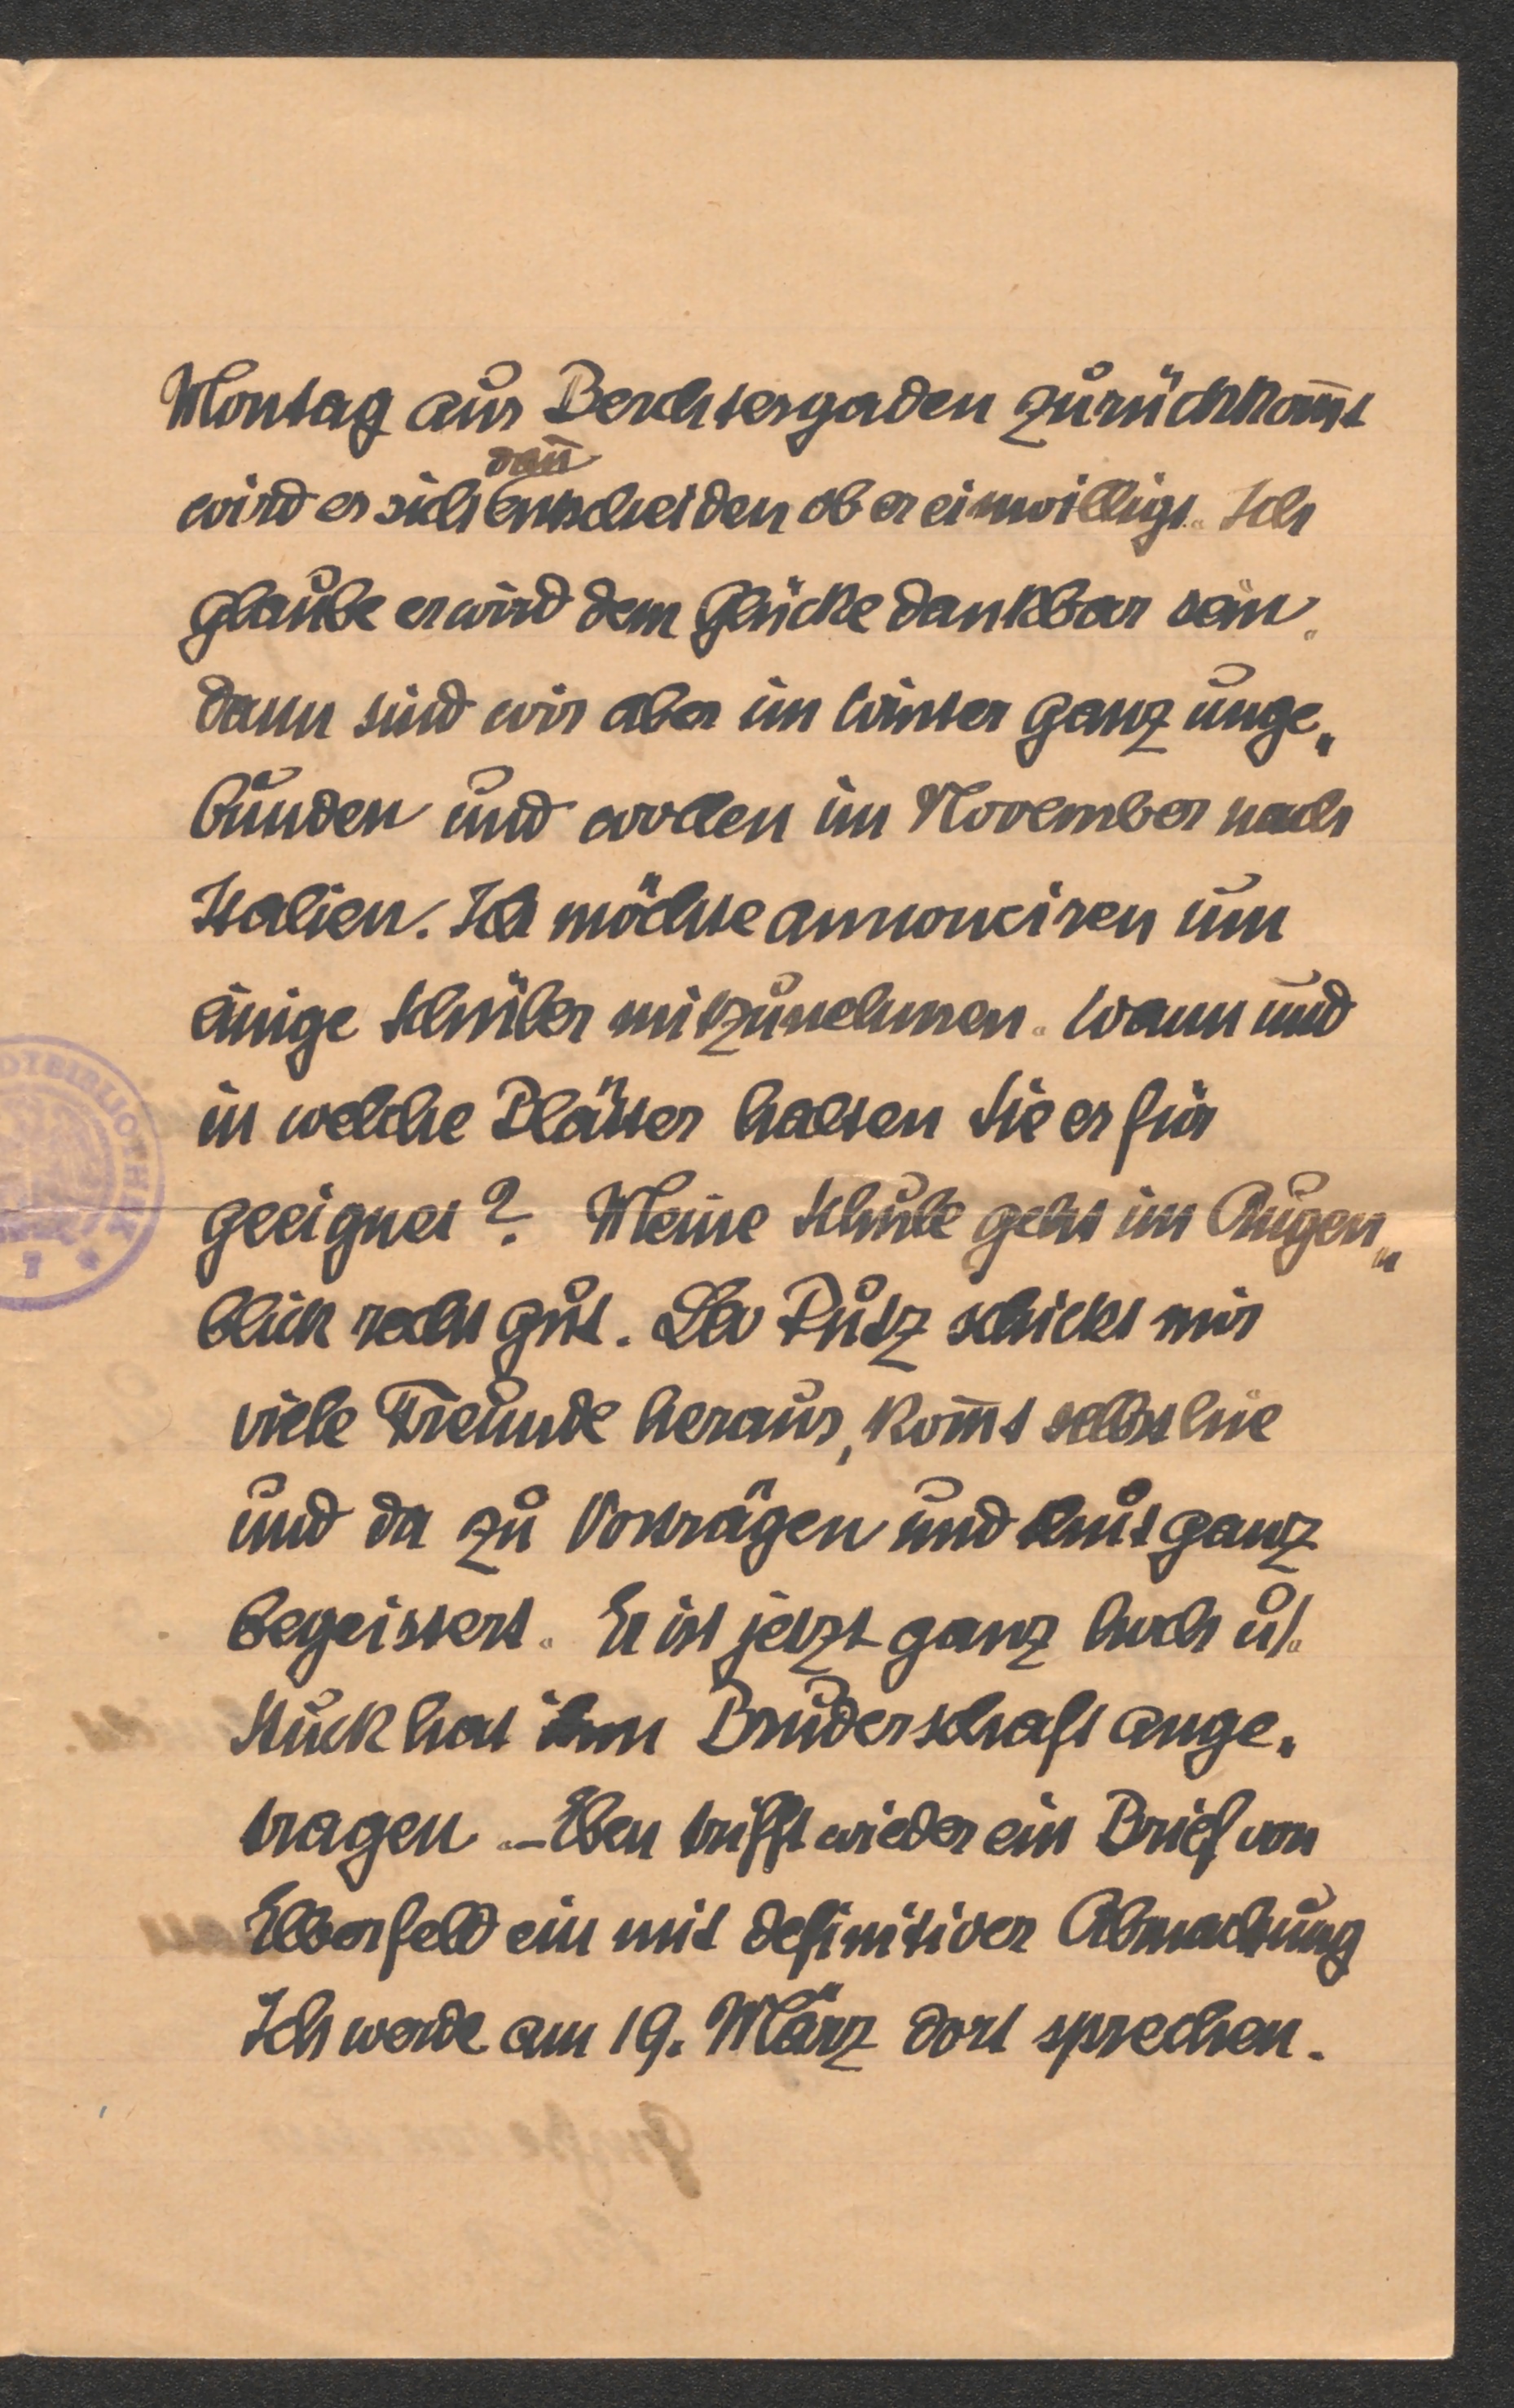 Montag aus Berchtesgaden zurückkom̅t
dan̅
wird er sich entscheiden ob er einwilligt. Ich
glaube er wird dem Glücke dankbar sein.
Dann sind wir aber im Winter ganz unge„
bunden und wollen im November nach
Italien. Ich möchte annonciren um
einige Schüler mitzunehmen. Wann und
in welche Blätter halten Sie es für
geeignet? Meine Schule geht im Augen„
blick recht gut. Leo Putz schickt mir
viele Freunde heraus, kom̅t selbst hie
und da zu Vorträgen und thut ganz
begeistert. Er ist jetzt ganz hoch u.
Stuck hat ihm Bruderschaft ange„
tragen. – Eben trifft wieder ein Brief von
Elberfeld ein mit definitiver Abmachung
Ich werde am 19. März dort sprechen.
DTBIBLIOTHEK